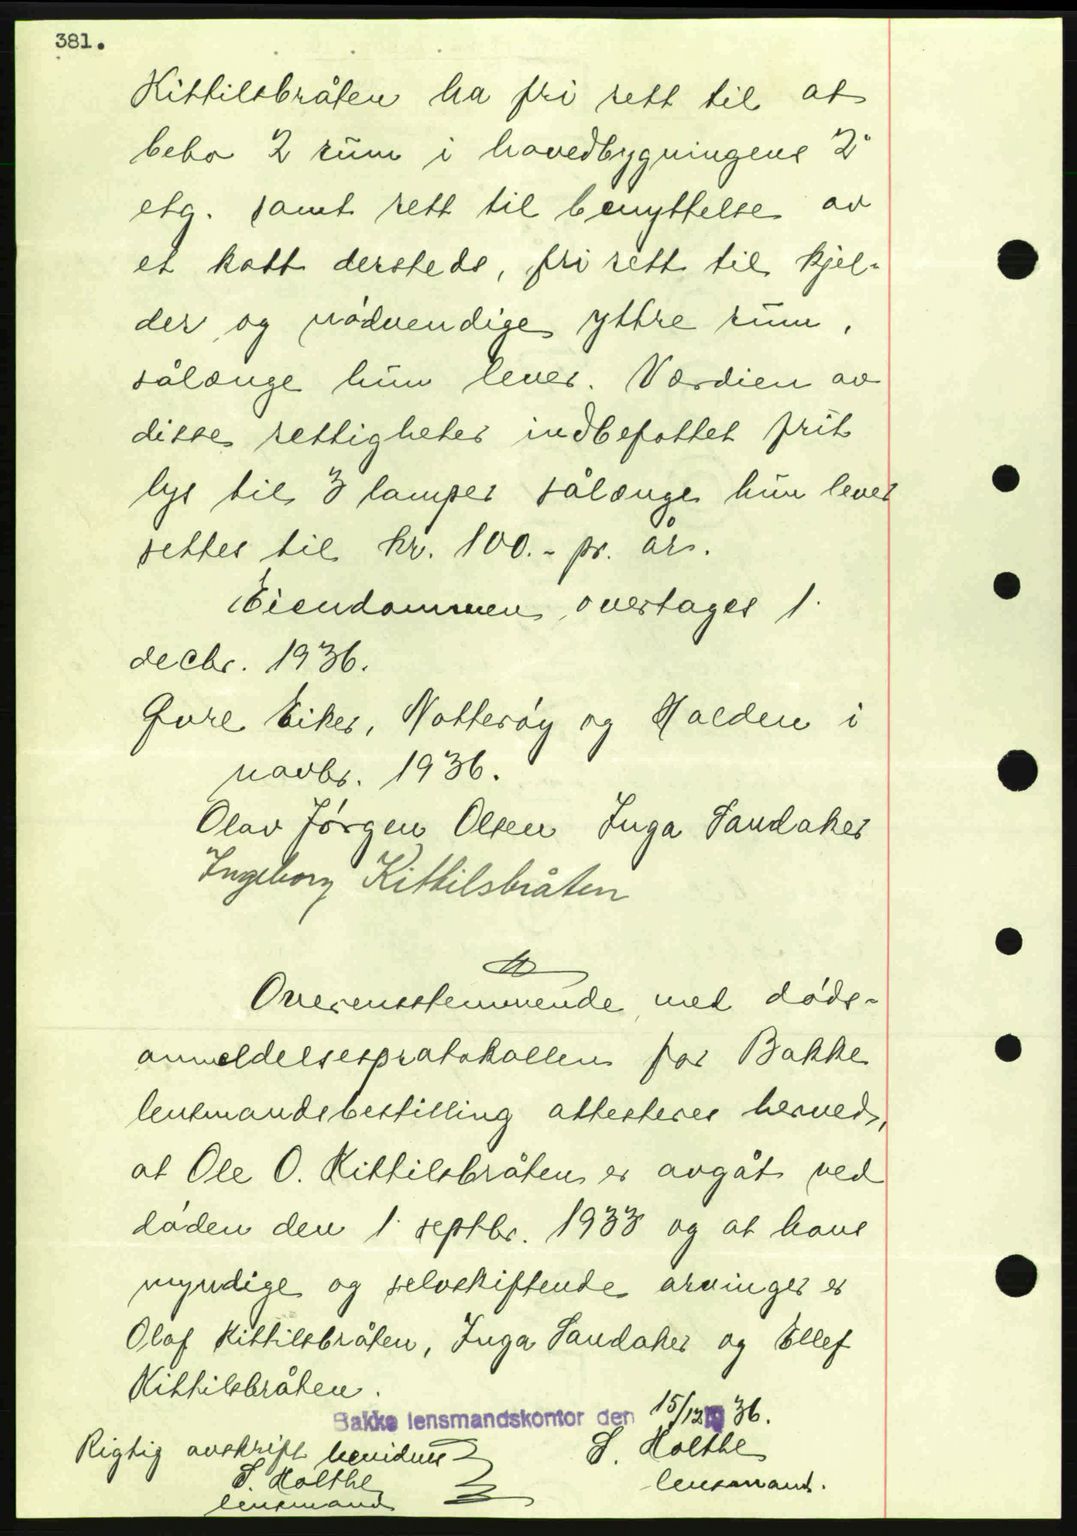 381.
Kittilsbråten ha fri rett til at
bebo 2 rum i hovedbygningens 2'
etg. samt rett til benyttelse av
et kott dersteds, fri rett til kjel-
der og nødvendige yttre rum,
sålænge hun lever. Værdien av
disse rettigheter indbefattet frit
lys til 3 lamper sålænge hun lever
settes til kr. 100.- pr. år.
Eiendommen overtages 1.
decbr. 1936.
Øvre Eiker, Nøtterøy og Halden i
novbr. 1936.
Olav Jørgen Olsen Inga Sandaker
Ingeborg Kittilsbråten
Overensstemmende med døds-
anmeldelsesprotokollen for Bakke
lensmandsbestilling attesteres herved,
at Ole O. Kittilsbråten er avgåt ved
døden den 1. septbr. 1933 og at hans
myndige og selvskiftende arvinger er
Olaf Kittilsbråten, Inga Sandaker og Ellef
Kittilsbråten.
Bakke lensmandskontor den 15/12 36.
Rigtig avskrift bevidnes S. Holthe
S. Holthe lensmand.
lensmand